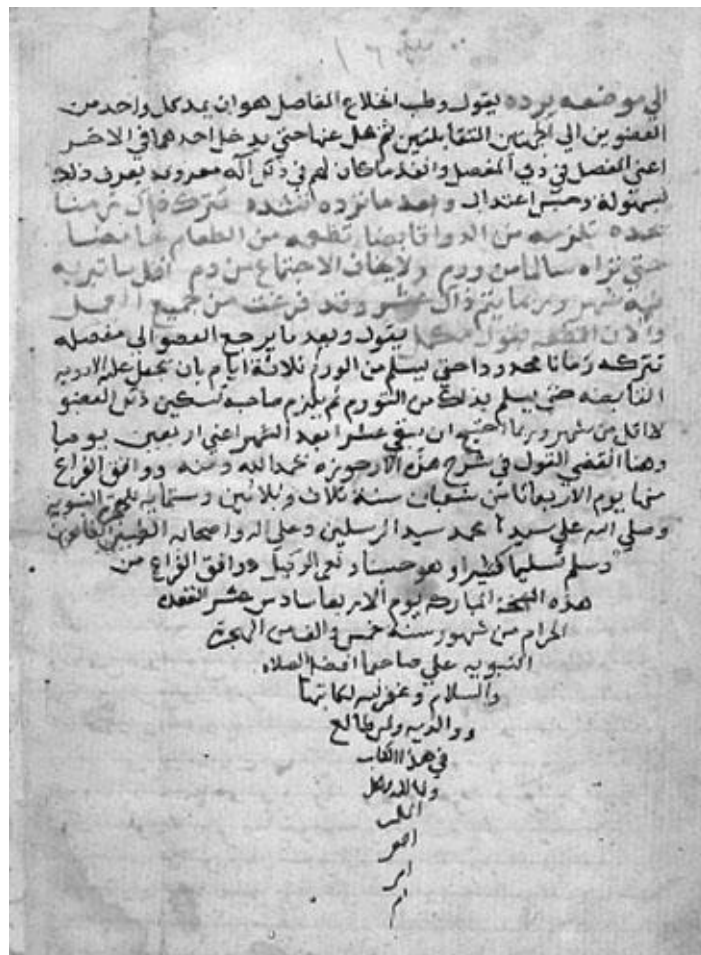 الي موضعه برده يقول وطب انخلاع المفاصل هو ان يمد كل واحد من
العضوين الي الجهتين المتقابلتين ثم يدخل احدهما في الاخر
اعني المفصل في ذي المفصل
لسهولة وحسن اعتدال وبعد ما ترده تشده تتركه
تلزمه من الدوا قابضا تطعمه من الطعام غامضا
حتي تراه سالما من ورم ولا يخاف الاجتماع من دم اقل ما تبريه
شهر وربما يتم ذاك عشر وقد فرغت من جميع العمل
والان اقطعه بقول مكمل يقول وبعد ما يرجع العضو الي مفصله
تتركه زمانا محدودا حتي يسلم من الورم ثلاثة ايام بان تجعل عليه الادوية
القابضه حتي يسلم بذلك من التورم ثم يلزم صاحبه تسكين ذلك العضو
لا اقل من شهر وربما احتيج ان يبقي عشرا بعد الشهر اعني اربعين يوما
وهنا انقضي القول في شرح هذه الارجوزه بحمد الله ومنه ووافق الفراغ
منها يوم الاربعا من شعبان سنة ثلاث وثلاثين وستمايه للهجرة النبويه
وصلي الله علي سيدنا محمد سيد المرسلين وعلي اله واصحابه الطيبين الطاهرين
وسلم تسليما كثيرا وهو حسبنا ونعم الوكيل ووافق الفراغ من
هذه النسخة المباركه يوم الاربعا سادس عشر القعده
الحرام من شهور سنة خمس والف من الهجرة
النبويه علي صاحبها افضل الصلاه
والسلام وغفر لله لكاتبها
ووالديه ولمن طالع
في هذا الكتاب